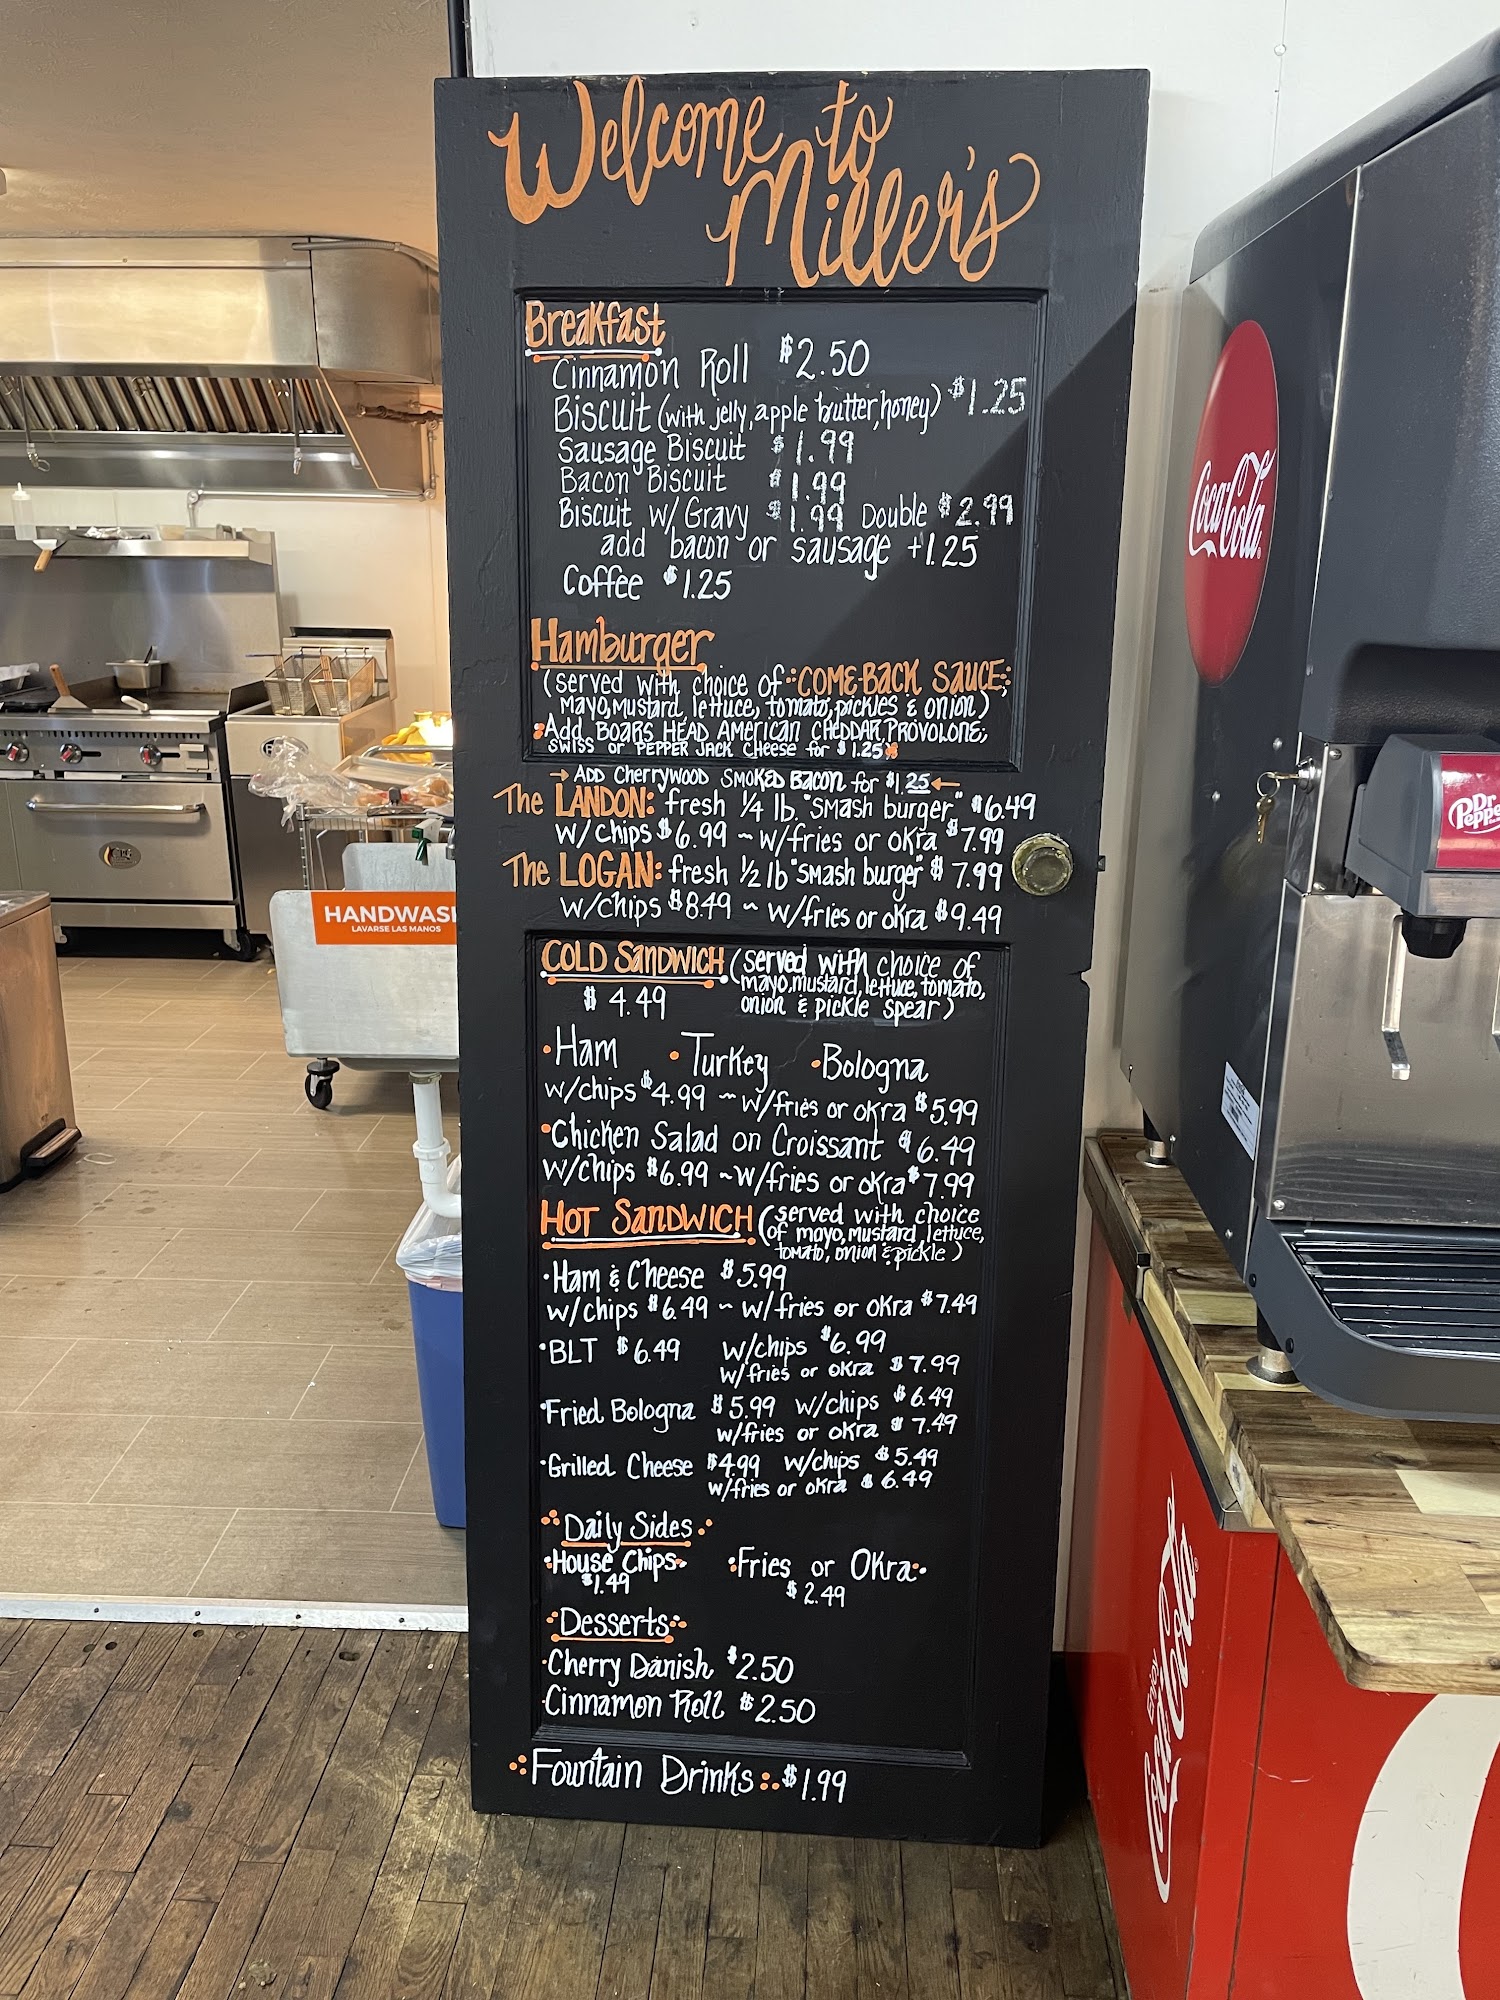 Welcome to
Miller's
Breakfast
Cinnamon Roll $2.50
Biscuit (with jelly, apple butter, honey) $1.25
Sausage Biscuit $1.99
Bacon Biscuit $1.99
Biscuit w/ Gravy $1.99 Double $2.99
add bacon or sausage +1.25
Coffee $1.25
Hamburger
(served with choice of COMEBACK SAUCE,
mayo, mustard, lettuce, tomato, pickles & onion)
Add BOARS HEAD AMERICAN CHEDDAR, PROVOLONE,
SWISS or PEPPER JACK Cheese for $1.25
→ ADD Cherrywood SMOKED BACON for $1.25 ←
The LANDON: fresh 1/4 lb. "smash burger" $6.49
w/chips $6.99 ~ w/fries or okra $7.99
The LOGAN: fresh 1/2 lb "smash burger" $7.99
w/chips $8.49 ~ w/fries or okra $9.49
COLD SANDWICH (served with choice of
mayo, mustard, lettuce, tomato,
$4.49 onion & pickle spear)
•Ham •Turkey •Bologna
w/chips $4.99 ~ w/fries or okra $5.99
•Chicken Salad on Croissant $6.49
w/chips $6.99 ~ w/fries or okra $7.99
HOT SANDWICH (served with choice
of mayo, mustard, lettuce,
tomato, onion & pickle)
•Ham & Cheese $5.99
w/chips $6.49 ~ w/fries or okra $7.49
•BLT $6.49 w/chips $6.99
w/fries or okra $7.99
•Fried Bologna $5.99 w/chips $6.49
w/fries or okra $7.49
•Grilled Cheese $4.99 w/chips $5.49
w/fries or okra $6.49
Daily Sides
House Chips Fries or Okra
$1.49 $2.49
Desserts
•Cherry Danish $2.50
•Cinnamon Roll $2.50
Fountain Drinks $1.99
HANDWASH
LAVARSE LAS MANOS
Coca-Cola
Dr Pepper
ENJOY
Coca-Cola